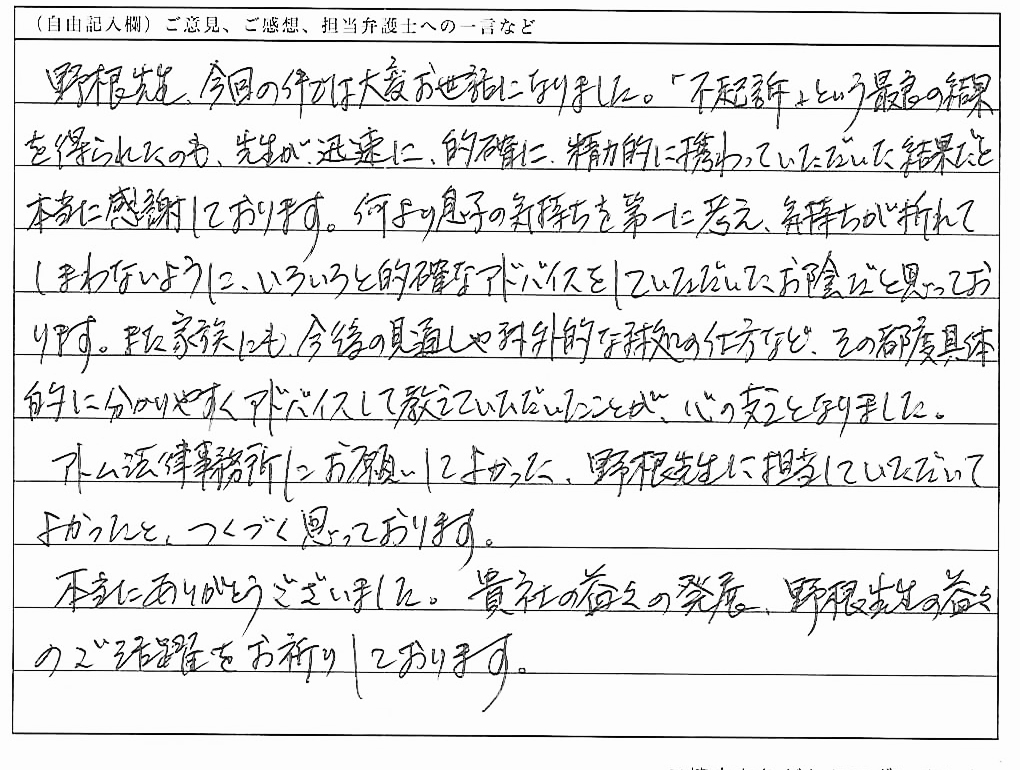 （自由記入欄）ご意見、ご感想、担当弁護士への一言など
野根先生、今回の件では大変お世話になりました。「不起訴」という最良の結果
を得られたのも、先生が迅速に、的確に、精力的に携わっていただいた結果だと
本当に感謝しております。何より息子の気持ちを第一に考え、気持ちが折れて
しまわないように、いろいろと的確なアドバイスをしていただいたお陰だと思ってお
ります。また家族にも、今後の見通しや対外的な対処の仕方など、その都度具体
的に分かりやすくアドバイスして教えていただいたことが、心の支えとなりました。
アトム法律事務所にお願いしてよかった、野根先生に担当していただいて
よかったと、つくづく思っております。
本当にありがとうございました。貴社の益々の発展、野根先生の益々
のご活躍をお祈りしております。